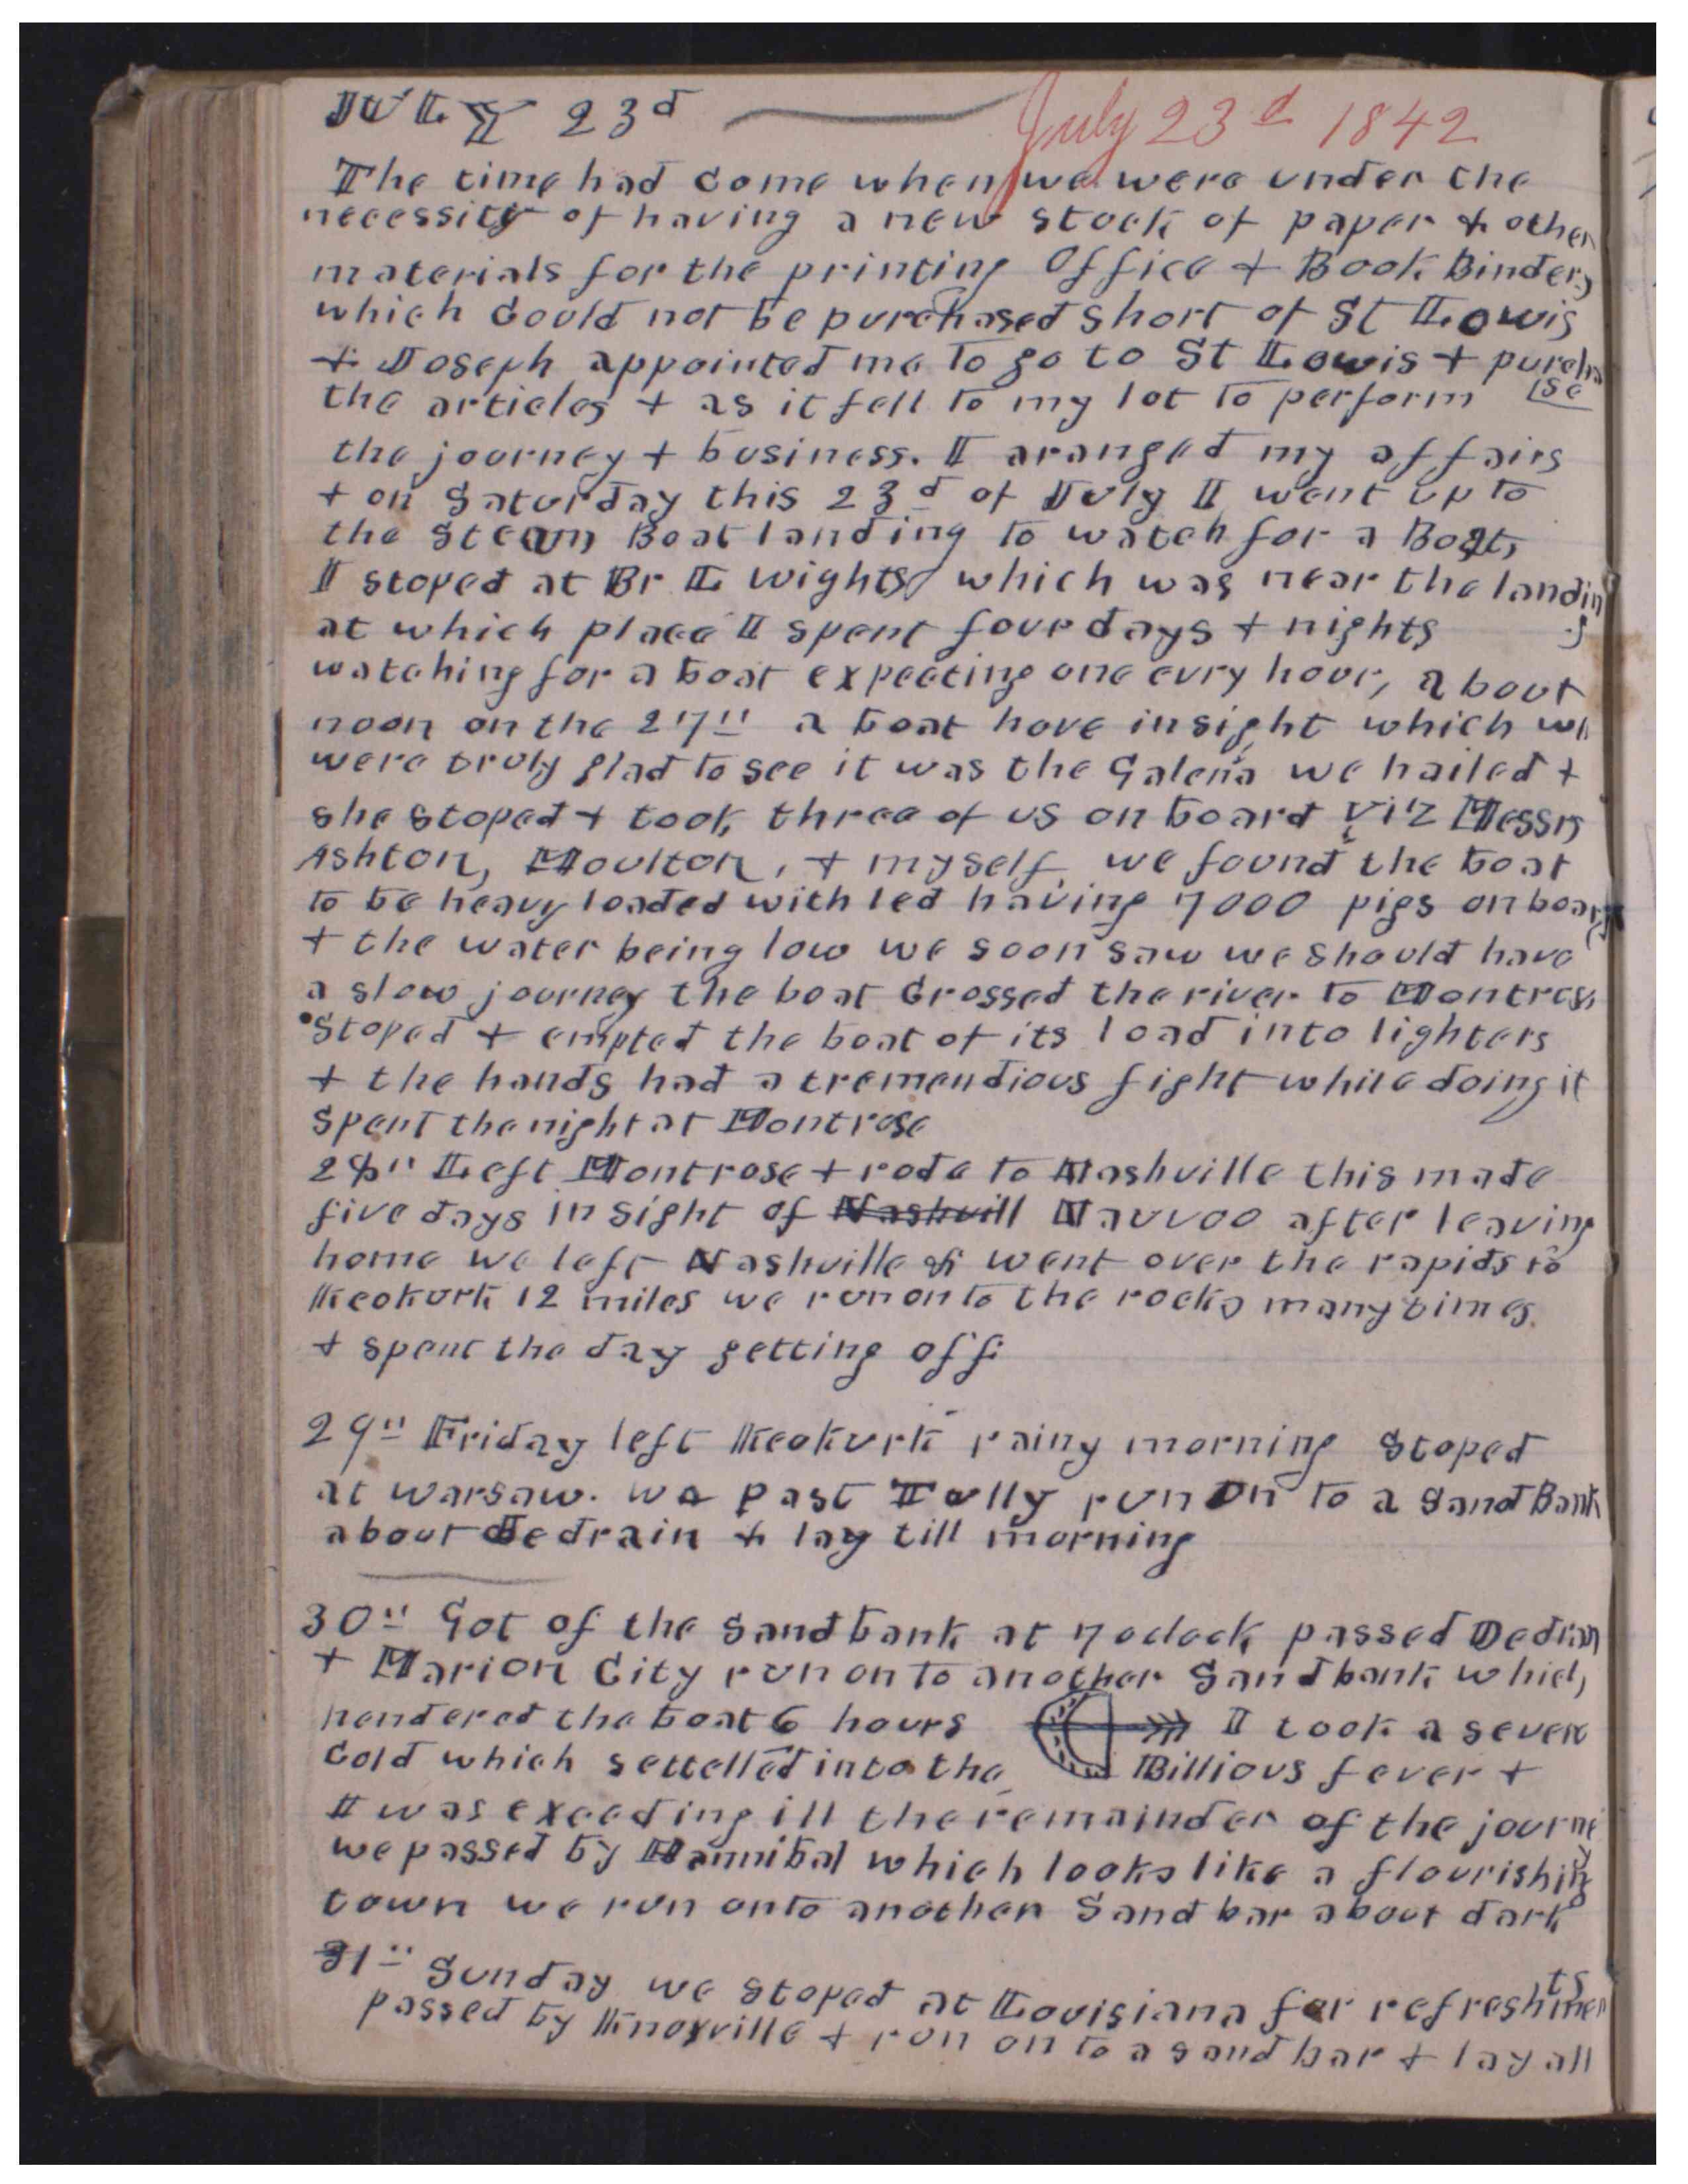 JULY 23d July 23d 1842
The time had come when we were under the
necessity of having a new stock of paper & other
materials for the printing Office & Book Bindery
which could not be purchased short of St Lowis
& Joseph appointed me to go to St Lowis & purcha
the articles & as it fell to my lot to perform se
the journey & business. I aranged my affairs
& on Saturday this 23d of July I went up to
the Steam Boat landing to watch for a Boat,
I stoped at Br L Wights which was near the landin
at which place I spent four days & nights g
watching for a boat expecting one evry hour, about
noon on the 27" a boat hove in sight which we
were truly glad to see it was the Galena we hailed &
she stoped & took three of us on board viz Messrs
Ashton, Moulton, & myself we found the boat
to be heavy loaded with led having 7000 pigs on board
& the water being low we soon saw we should have
a slow journey the boat Crossed the river to Montrose
Stoped & empted the boat of its load into lighters
& the hands had a tremendious fight while doing it
spent the night at Montrose
28" Left Montrose & rode to Nashville this made
five days in sight of Nashvill Nauvoo after leaving
home we left Nashville & went over the rapids to
Keokuck 12 miles we run onto the rocks many times
& spent the day getting off.
29" Friday left Keokurk rainy morning Stoped
at Warsaw. we past Tully run on to a Sand Bank
about Dedrain & lay till morning
30" Got of the Sandbank at 7 oclock passed Dedran
& Marion City run on to another Sandbank which
hendered the boat 6 hours I took a severe
Cold which settelled into the Billious fever &
I was exceeding ill the remainder of the journey
we passed by Hannibal which looks like a flourishing
town we run onto another Sand bar about dark
31" Sunday we stoped at Louisiana for refreshments
passed by Knoxville & run on to a sand bar & lay all